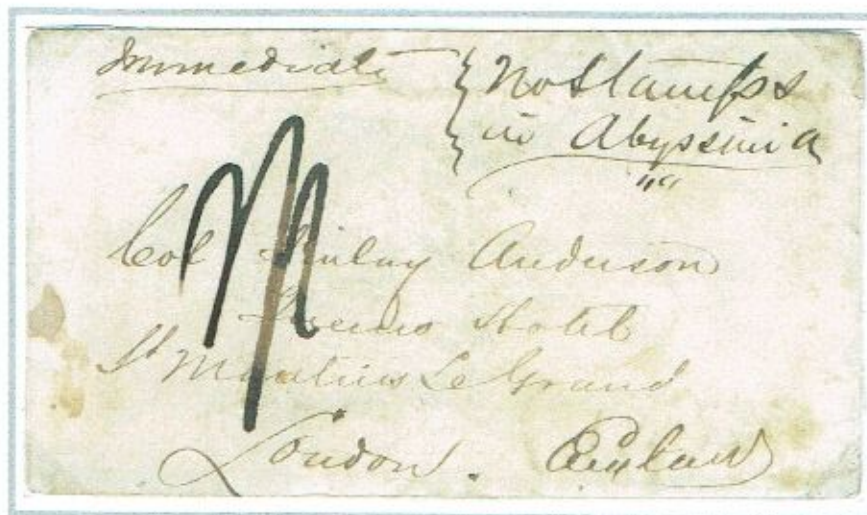 Immediate
No Stamps
in Abyssinia
Col Finlay Anderson
Hotel
St Martins Le Grand
London. England